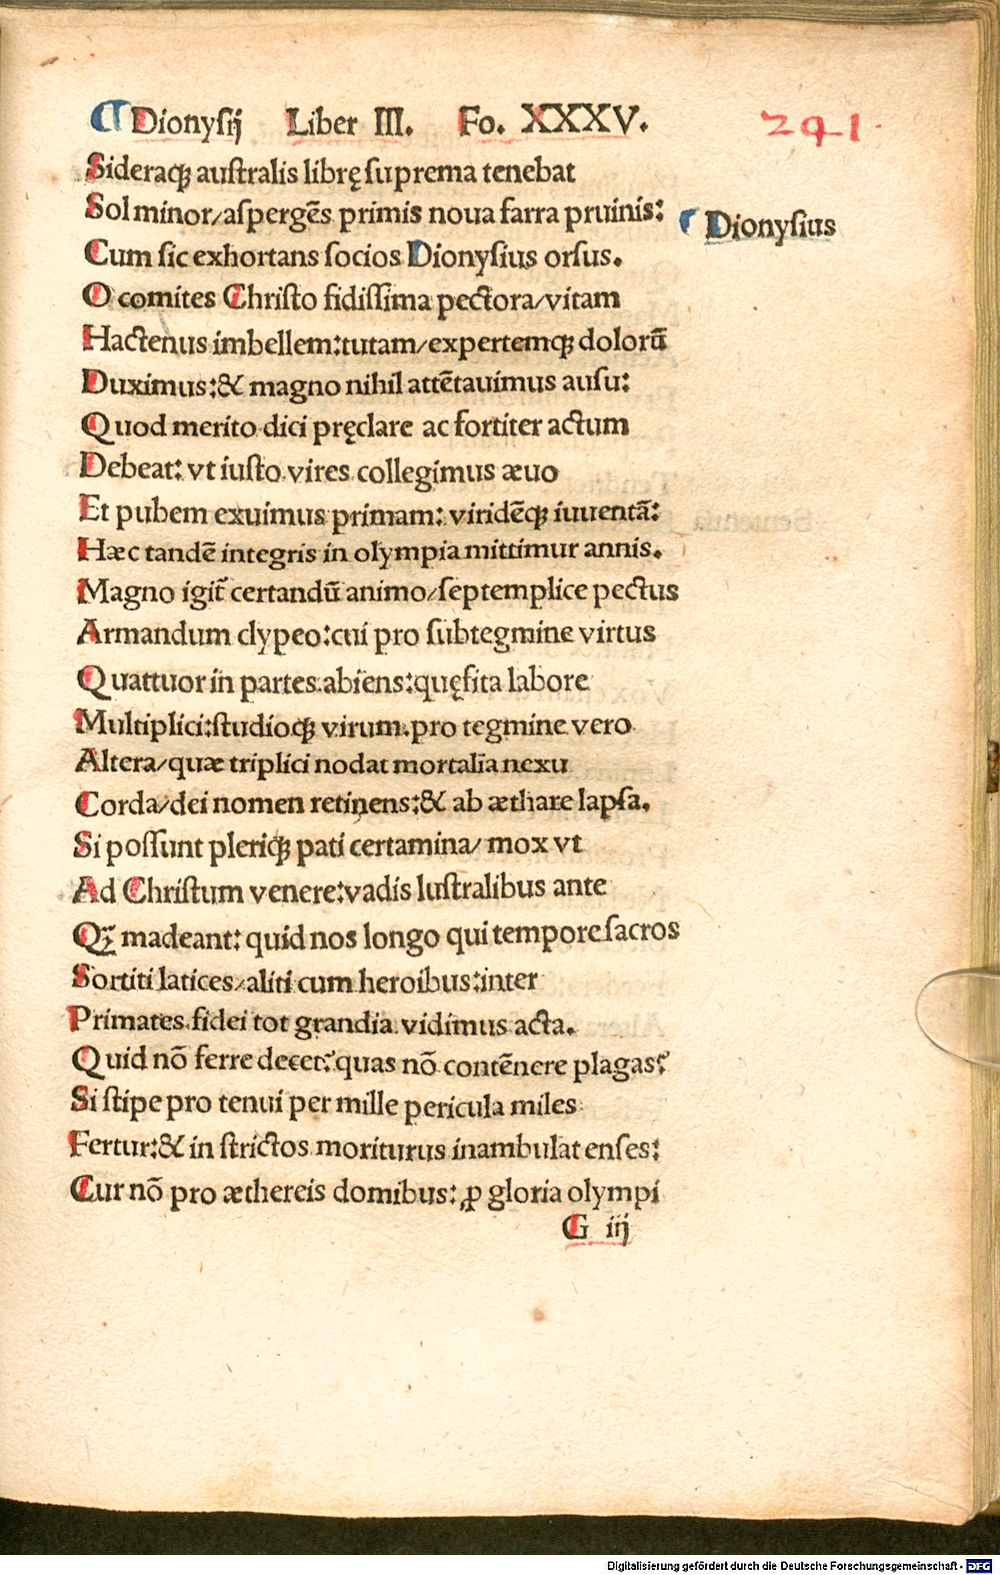 ¶ Dionysij Liber III. Fo. XXXV.
241
Sideraq; australis librę suprema tenebat
Sol minor/aspergēs primis noua farra pruinis:
¶ Dionysius
Cum sic exhortans socios Dionysius orsus.
O comites Christo fidissima pectora/vitam
Hactenus imbellem:tutam/expertemq; dolorū
Duximus:& magno nihil attētauimus ausu:
Quod merito dici pręclare ac fortiter actum
Debeat: vt iusto vires collegimus æuo
Et pubem exuimus primam: viridēq; iuuentā:
Hæc tandē integris in olympia mittimur annis.
Magno igit̃ certandū animo/septemplice pectus
Armandum clypeo:cui pro subtegmine virtus
Quattuor in partes abiens:quęsita labore
Multiplici:studioq; virum.pro tegmine vero
Altera/quæ triplici nodat mortalia nexu
Corda/dei nomen retinens:& ab æthare lapsa.
Si possunt pleriq; pati certamina/mox vt
Ad Christum venere:vadis lustralibus ante
Qꝫ madeant: quid nos longo qui tempore sacros
Sortiti latices/aliti cum heroibus:inter
Primates fidei tot grandia vidimus acta.
Quid nō ferre decet?quas nō contēnere plagas?
Si stipe pro tenui per mille pericula miles
Fertur:& in strictos moriturus inambulat enses:
Cur nō pro æthereis domibus: ꝓ gloria olympi
G iij
Digitalisierung gefördert durch die Deutsche Forschungsgemeinschaft - DFG